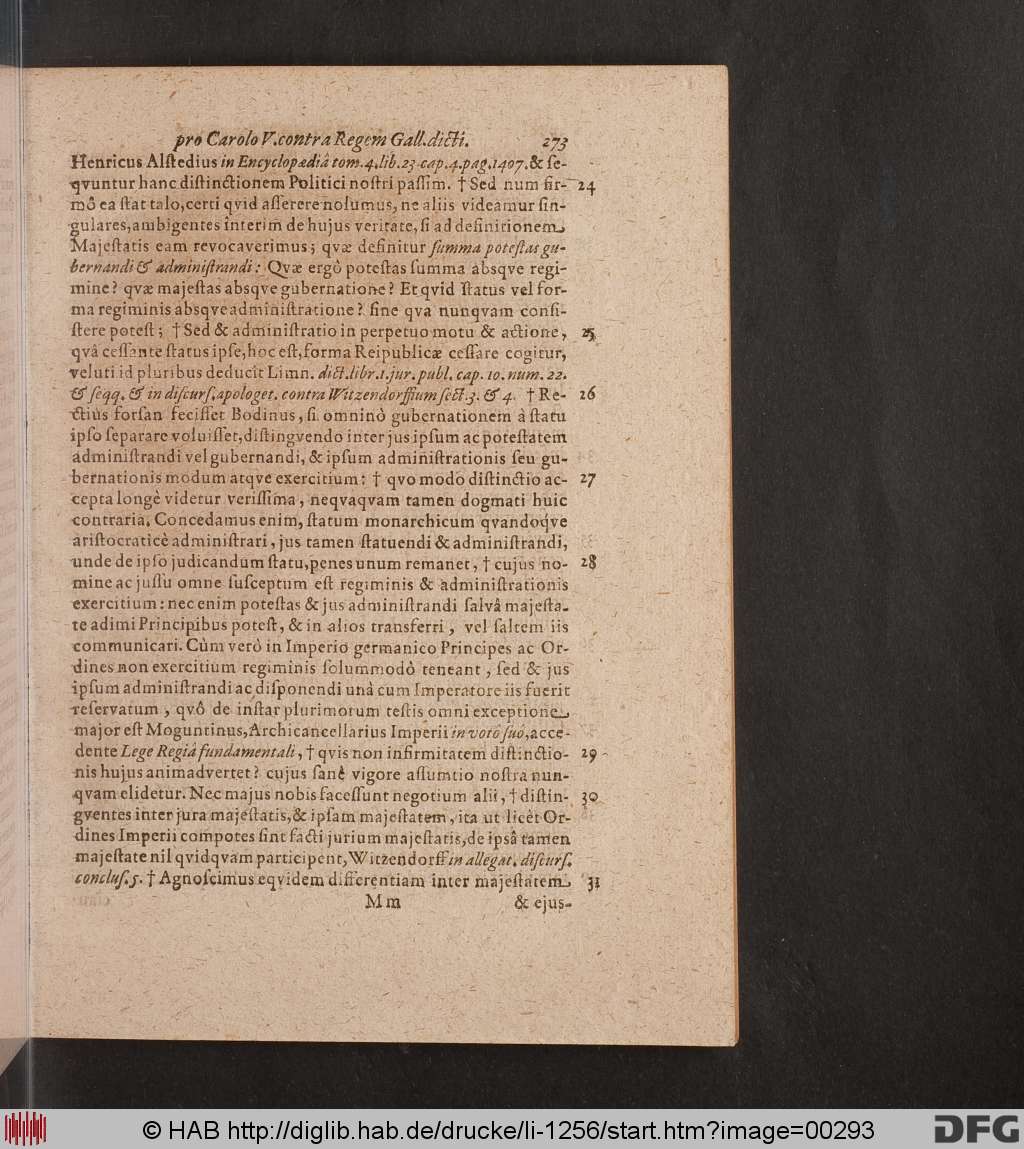 pro Carolo V. contra Regem Gall. dicti. 273
Henricus Alſtedius in Encyclopædiâ tom. 4. lib. 23 cap. 4. pag. 1497. & ſe-
qvuntur hanc diſtinctionem Politici noſtri paſſim. † Sed num fir- 24
mô ea ſtat talo, certi qvid aſſerere noſumus, ne aliis videamur ſin-
gulares, ambigentes interim de hujus veritate, ſi ad definitionem
Majeſtatis eam revocaverimus; qvæ definitur ſumma poteſtas gu-
bernandi & adminiſtrandi: Qvæ ergò poteſtas ſumma absqve regi-
mine? qvæ majeſtas absqve gubernatione? Et qvid ſtatus vel for-
ma regiminis absqve adminiſtratione? ſine qva nunqvam conſi-
ſtere poteſt; † Sed & adminiſtratio in perpetuo motu & actione, 25
qvâ ceſſante ſtatus ipſe, hoc eſt, forma Reipublicæ ceſſare cogitur,
veluti id pluribus deducit Limn. dict. libr. 1. jur. publ. cap. 10. num. 22.
& ſeqq. & in diſcurſ. apologet. contra Witzendorffium ſect. 3. & 4. † Re- 26
ctiùs forſan feciſſet Bodinus, ſi omninò gubernationem à ſtatu
ipſo ſeparare voluiſſet, diſtingvendo inter jus ipſum ac poteſtatem
adminiſtrandi vel gubernandi, & ipſum adminiſtrationis ſeu gu-
bernationis modum atqve exercitium: † qvo modo diſtinctio ac- 27
cepta longè videtur veriſſima, neqvaqvam tamen dogmati huic
contraria. Concedamus enim, ſtatum monarchicum qvandoq́ve
ariſtocraticè adminiſtrari, jus tamen ſtatuendi & adminiſtrandi,
unde de ipſo judicandum ſtatu, penes unum remanet, † cujus no- 28
mine ac juſſu omne ſuſceptum eſt regiminis & adminiſtrationis
exercitium: nec enim poteſtas & jus adminiſtrandi ſalvâ majeſta-
te adimi Principibus poteſt, & in alios transferri, vel ſaltem iis
communicari. Cùm verò in Imperio germanico Principes ac Or-
dines non exercitium regiminis ſolummodò teneant, ſed & jus
ipſum adminiſtrandi ac diſponendi unà cum Imperatore iis fuerit
reſervatum, qvô de inſtar plurimorum teſtis omni exceptione
major eſt Moguntinus, Archicancellarius Imperii in votô ſuô, acce-
dente Lege Regiâ fundamentali, † qvis non infirmitatem diſtinctio- 29
nis hujus animadvertet? cujus ſanè vigore aſſumtio noſtra nun-
qvam elidetur. Nec majus nobis faceſſunt negotium alii, † diſtin- 30
gventes inter jura majeſtatis, & ipſam majeſtatem, ita ut licèt Or-
dines Imperii compotes ſint facti jurium majeſtatis, de ipsâ tamen
majeſtate nil qvidqvam participent, Witzendorff in allegat. diſcurſ.
concluſ. 5. † Agnoſcimus eqvidem differentiam inter majeſtatem 31
Mm & ejus-
© HAB http://diglib.hab.de/drucke/li-1256/start.htm?image=00293
DFG